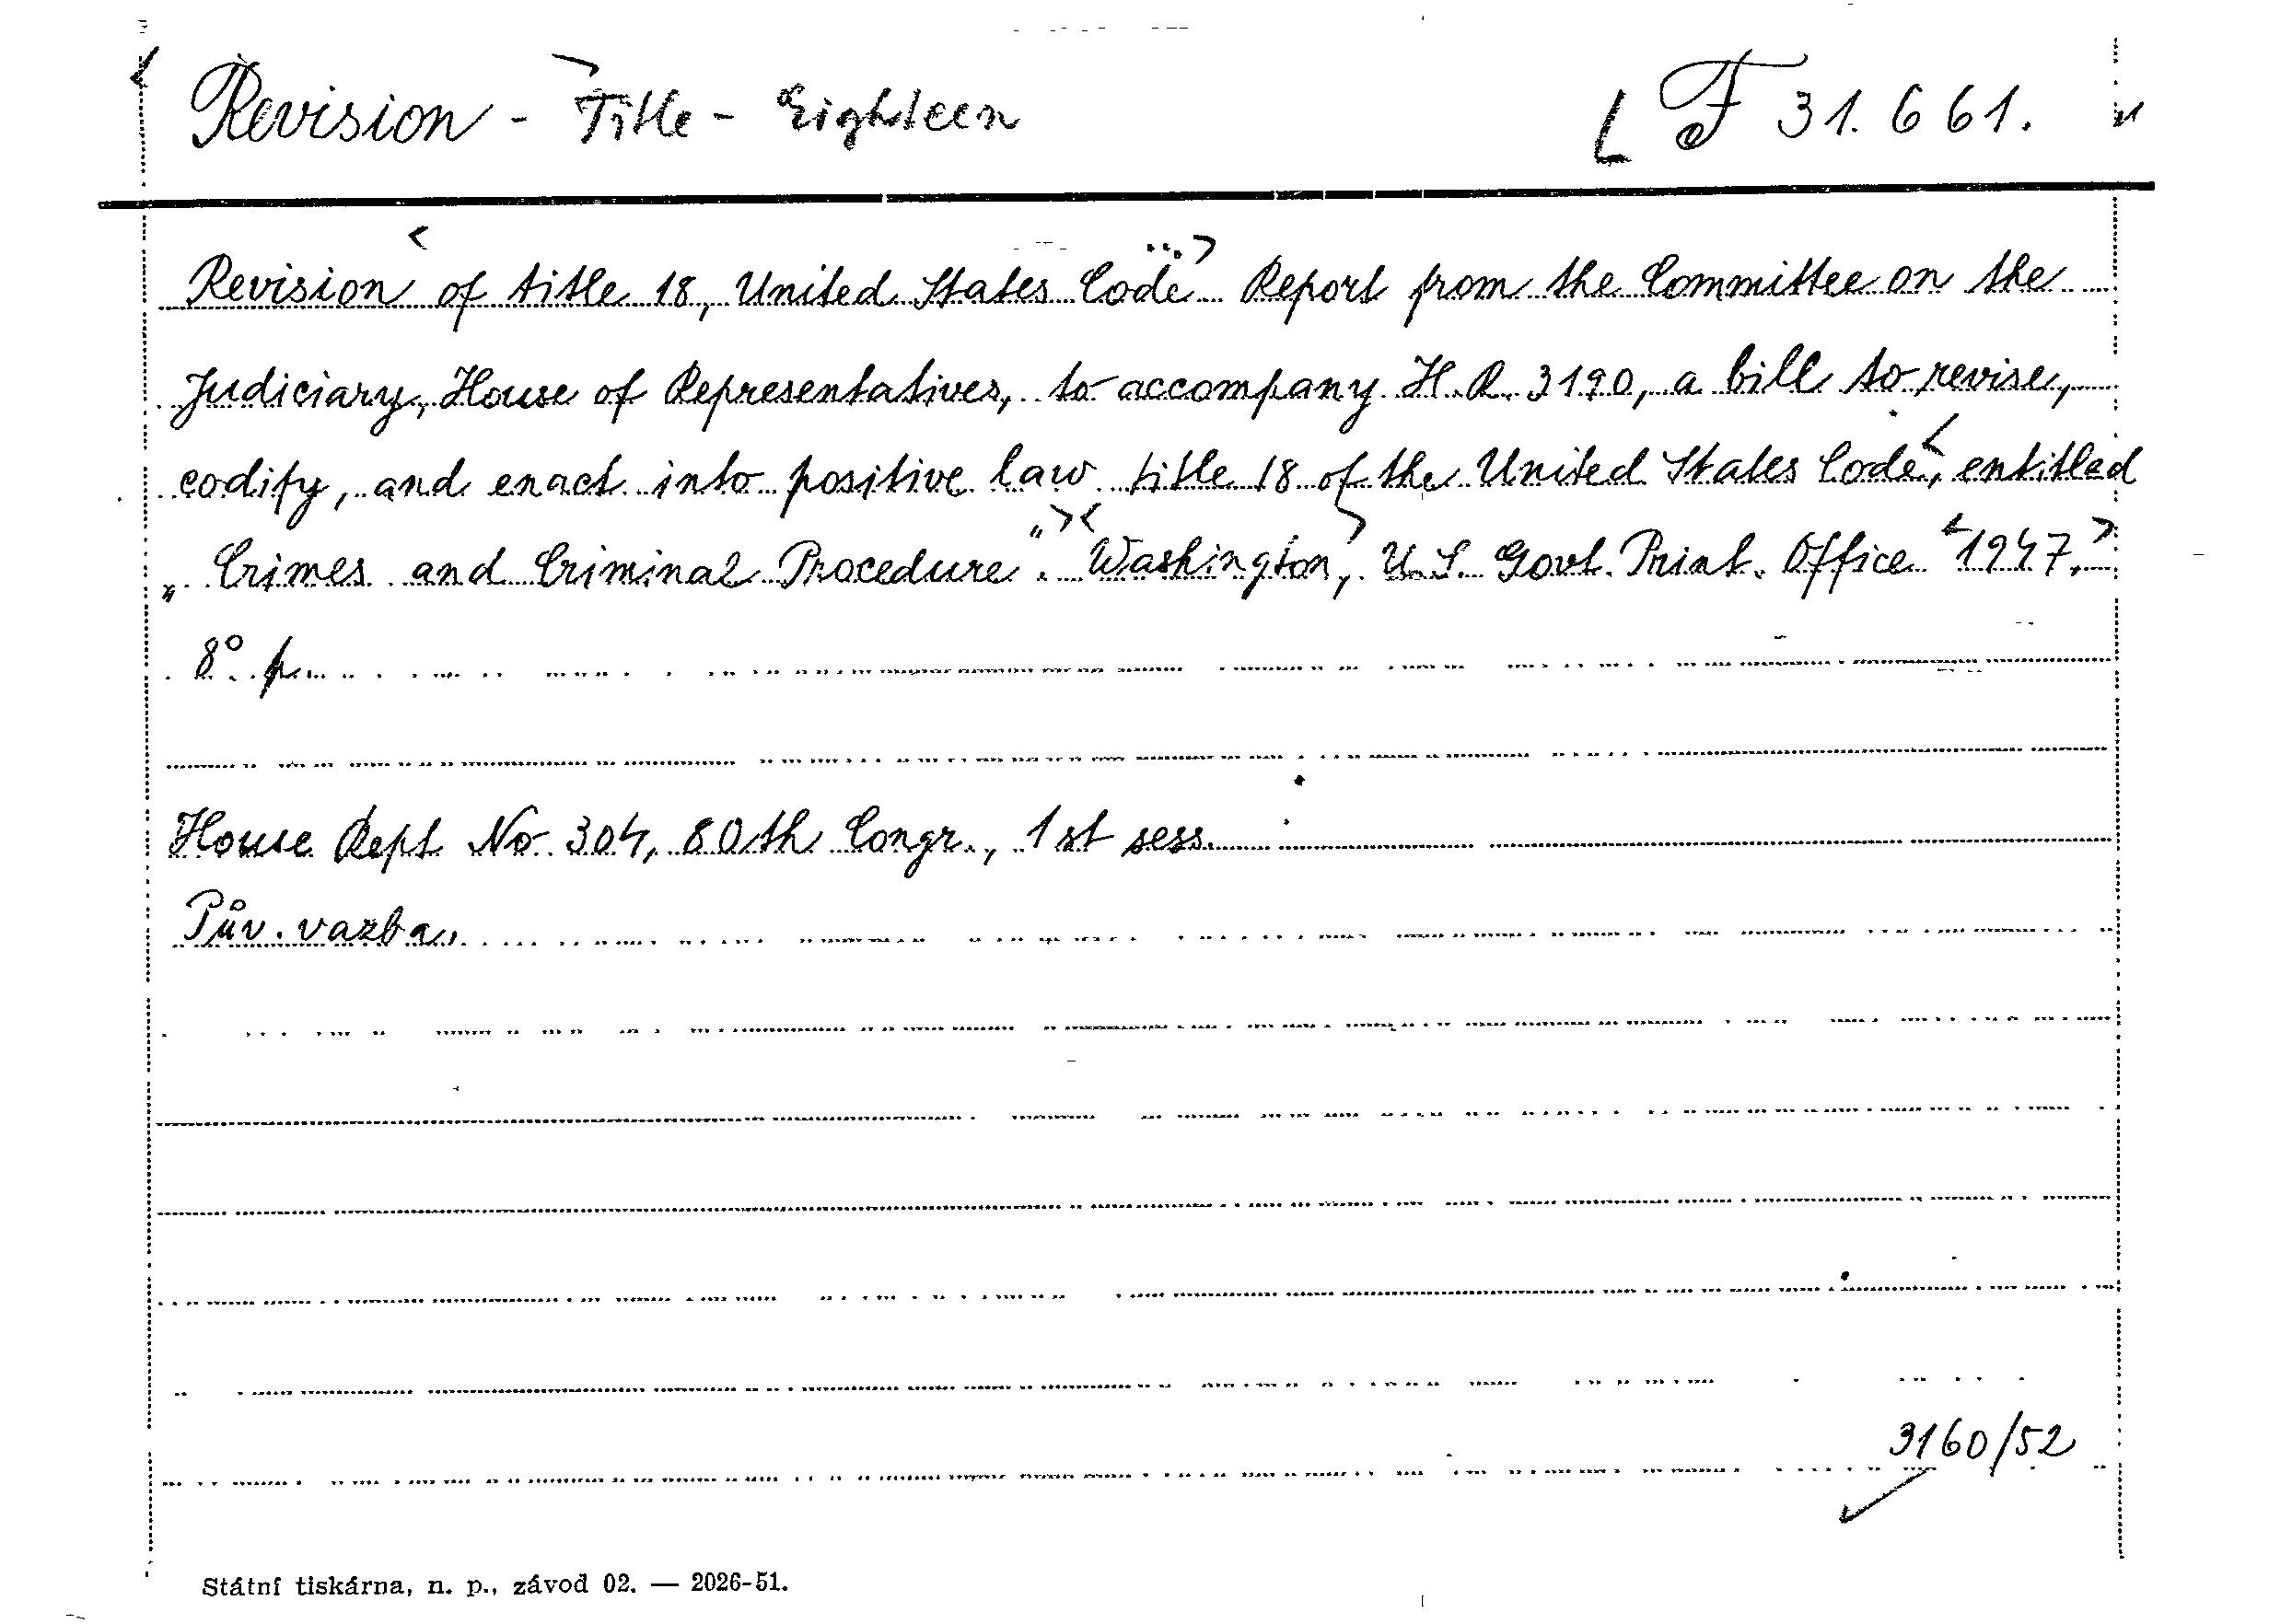 Revision - Title - Eighteen [ F 31.661.
Revision of title 18, United States Code ... Report from the Committee on the
Judiciary, House of Representatives, to accompany H.R. 3190, a bill to revise,
codify, and enact into positive law title 18 of the United States Code, entitled
„Crimes and Criminal Procedure". Washington, U.S. Govt. Print. Office 1947.
8° p.
House Rept No 304, 80th Congr., 1st sess.
Pův. vazba.
3160/52
Státní tiskárna, n. p., závod 02. — 2026-51.